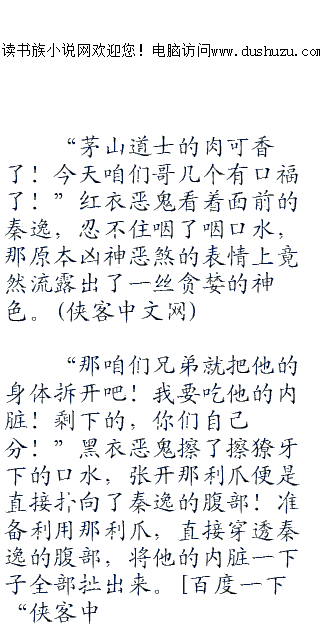 读书族小说网欢迎您！电脑访问www.dushuzu.com
“茅山道士的肉可香
了！今天咱们哥几个有口福
了！”红衣恶鬼看着面前的
秦逸，忍不住咽了咽口水，
那原本凶神恶煞的表情上竟
然流露出了一丝贪婪的神
色。(侠客中文网)
“那咱们兄弟就把他的
身体拆开吧！我要吃他的内
脏！剩下的，你们自己
分！”黑衣恶鬼擦了擦獠牙
下的口水，张开那利爪便是
直接扑向了秦逸的腹部！准
备利用那利爪，直接穿透秦
逸的腹部，将他的内脏一下
子全部扯出来。[百度一下
“侠客中